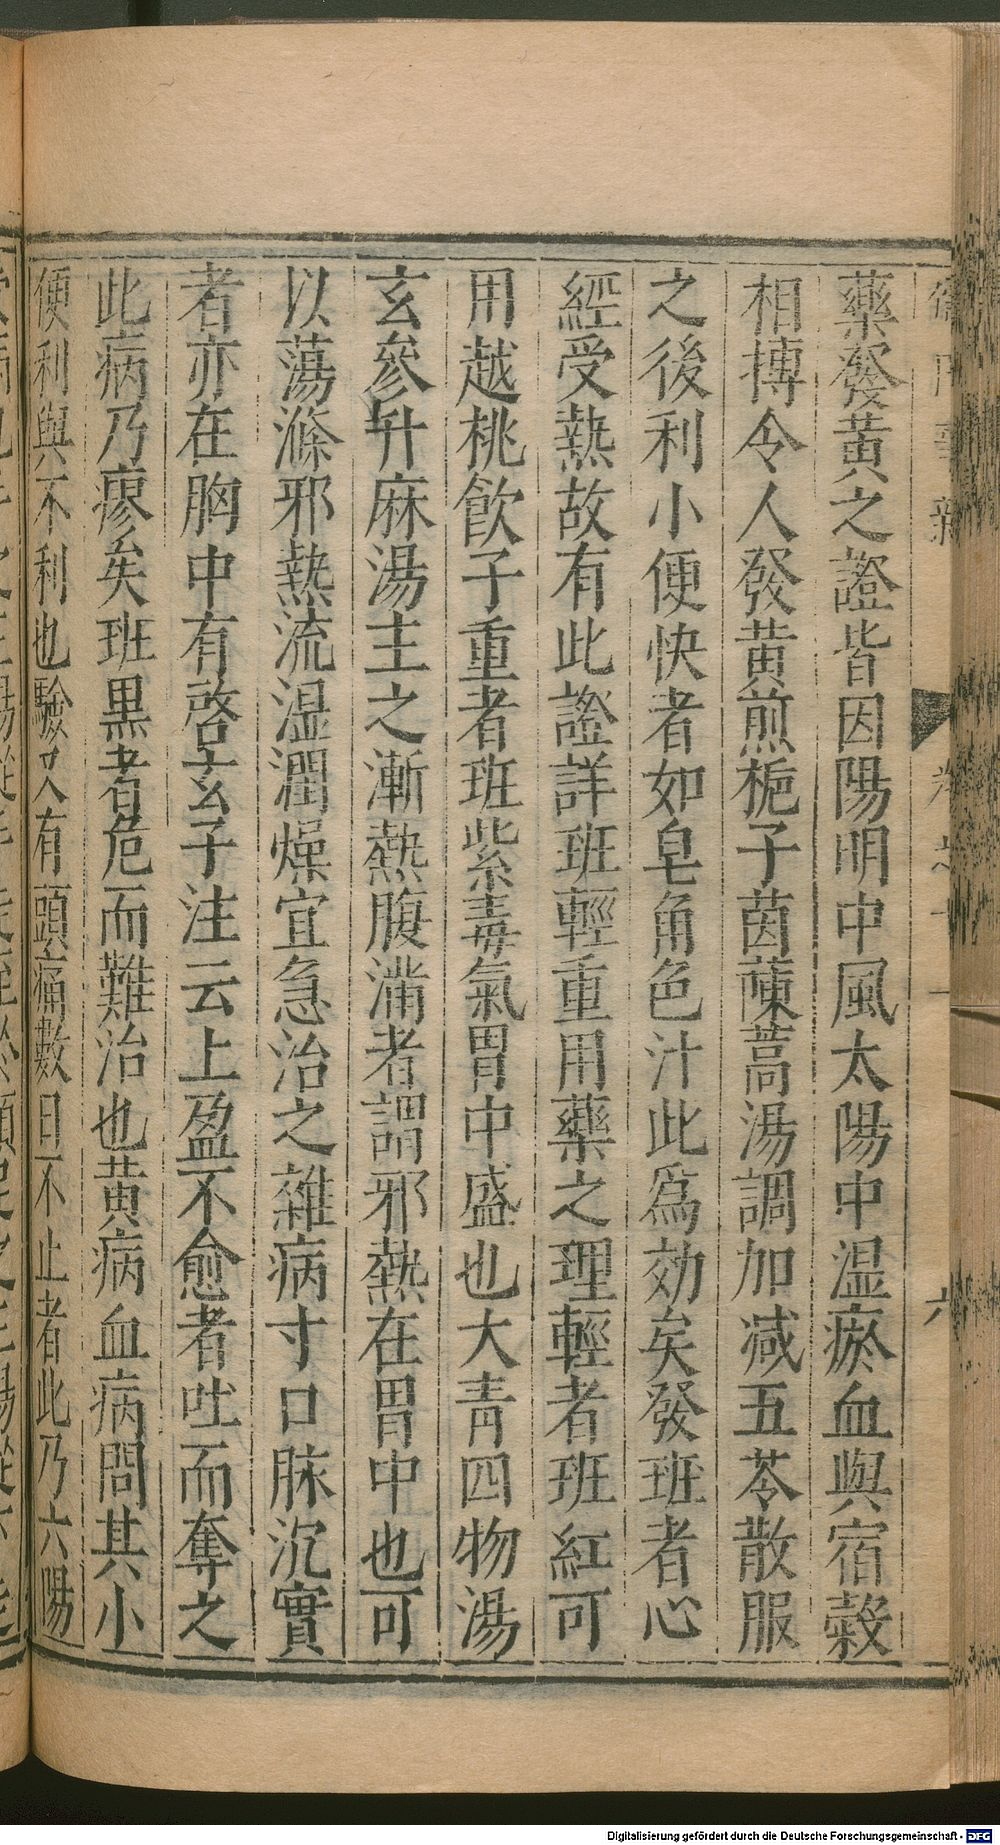 藥發黃之證皆因陽明中風太陽中温瘀血與宿穀
相搏令人發黄煎梔子茵蔯蒿湯調加减五苓散服
之後利小便快者如皂角色汁此爲効矣發班者心
經受熱故有此證詳班輕重用藥之理輕者班紅可
用越桃飲子重者班紫毒氣胃中盛也大青四物湯
玄參升麻湯主之漸熱腹滿者謂邪熱在胃中也可
以蕩滌邪熱流湿潤燥宜急治之雜病寸口脉沉實
者亦在胸中有啓玄子注云上盈不愈者吐而奪之
此病乃瘳矣班黒者危而難治也黄病血病問其小
便利與不利也驗又人有頭痛數日不止者此乃六陽
Digitalisierung gefördert durch die Deutsche Forschungsgemeinschaft - DFG